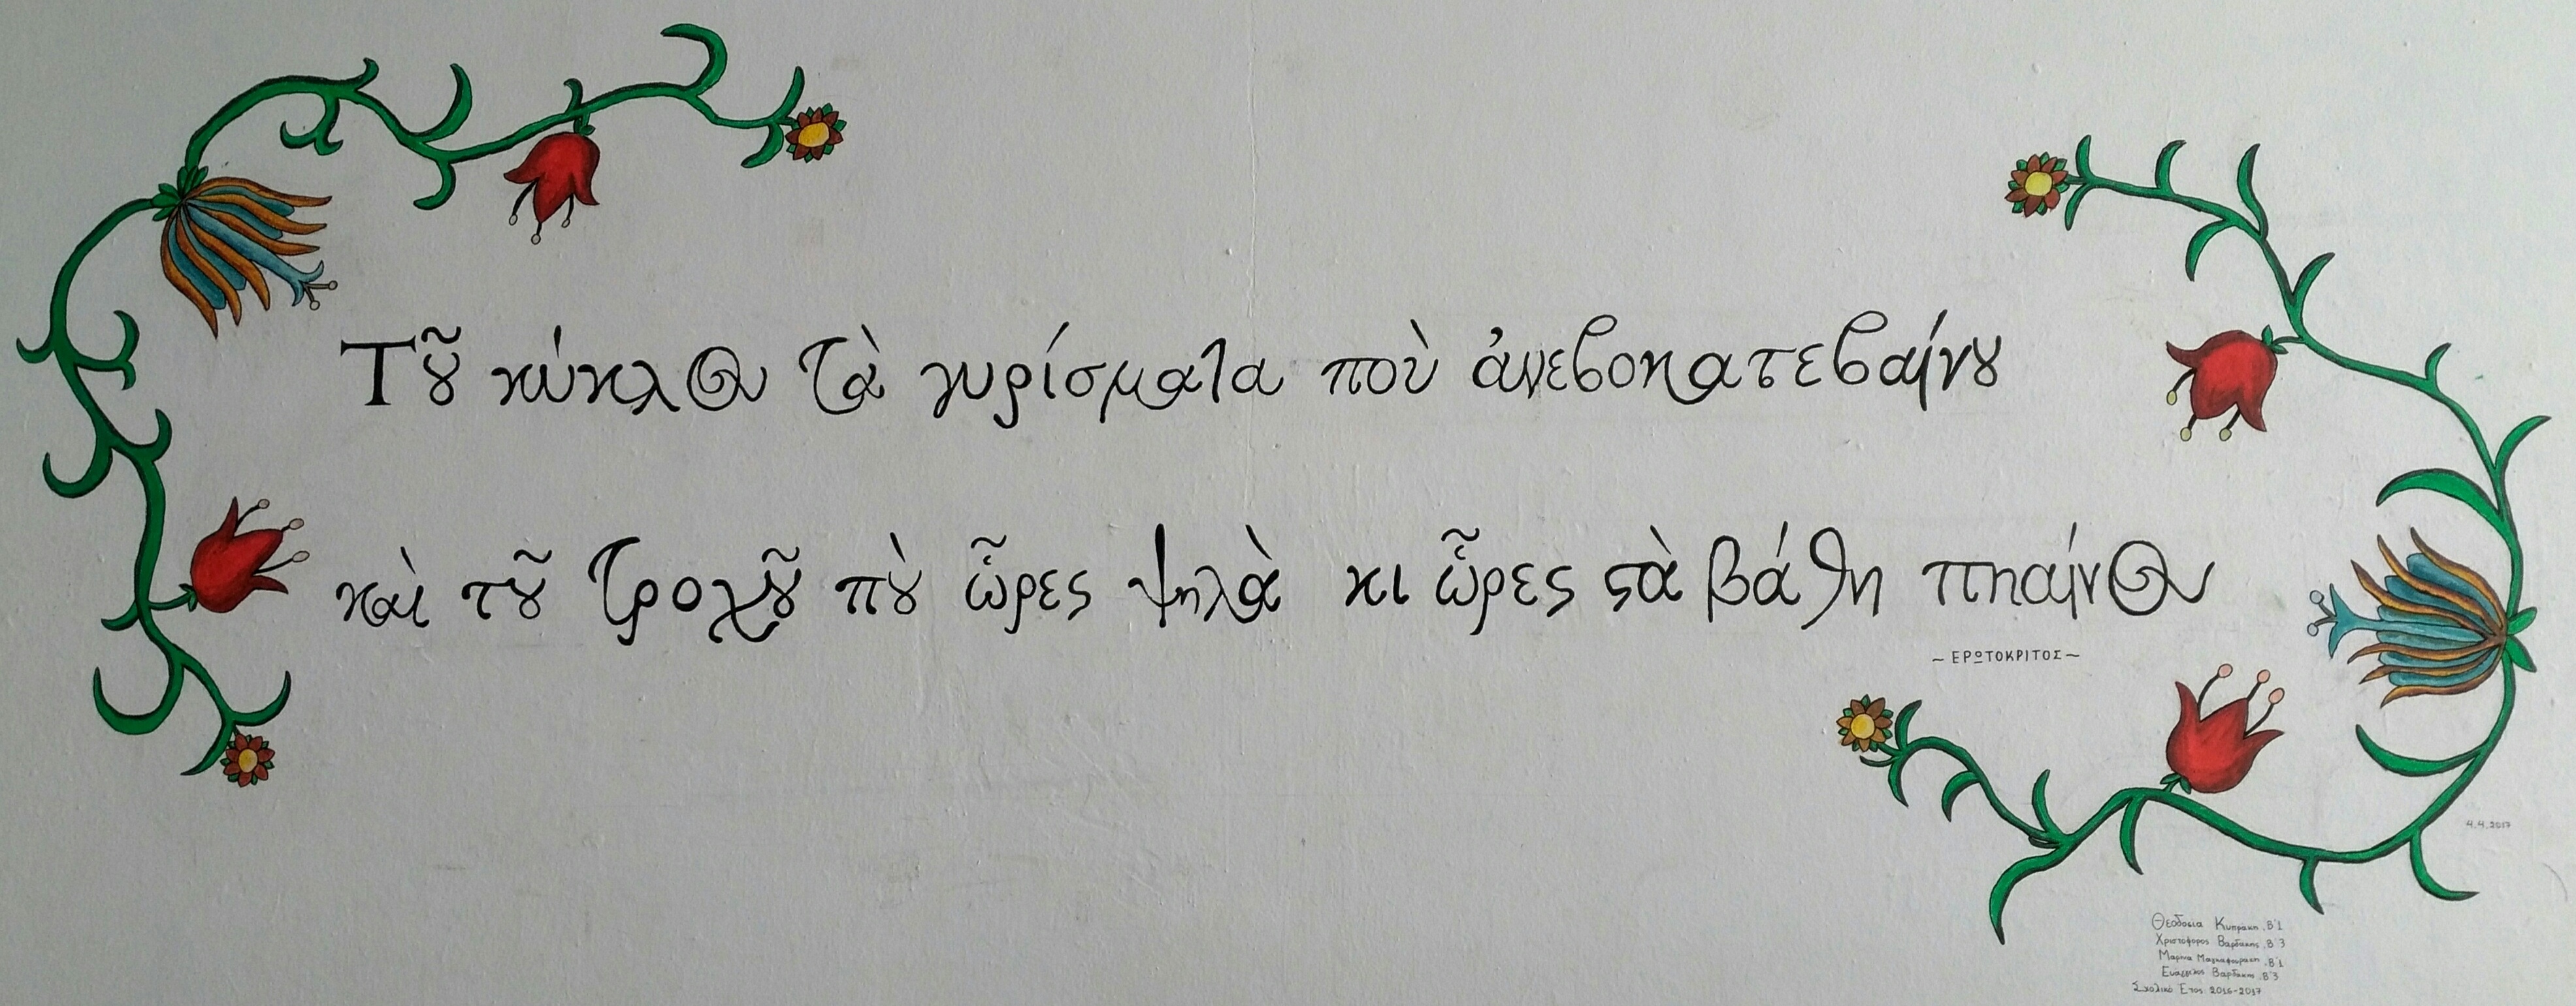 Τοῦ κύκλου τὰ γυρίσματα ποὺ ἀνεβοκατεβαίνου
καὶ τοῦ τροχοῦ ποὺ ὧρες ψηλὰ κι ὧρες στὰ βάθη πηαίνου
~ΕΡΩΤΟΚΡΙΤΟΣ~
4.4.2017
Θεοδοσια Κυπράκη, Β'1
Χριστόφορος Βαρδάκης, Β'3
Μαρίνα Β'1
Ευάγγελος Βαρδάκης, Β'3
Σχολικό Έτος: 2016-2017